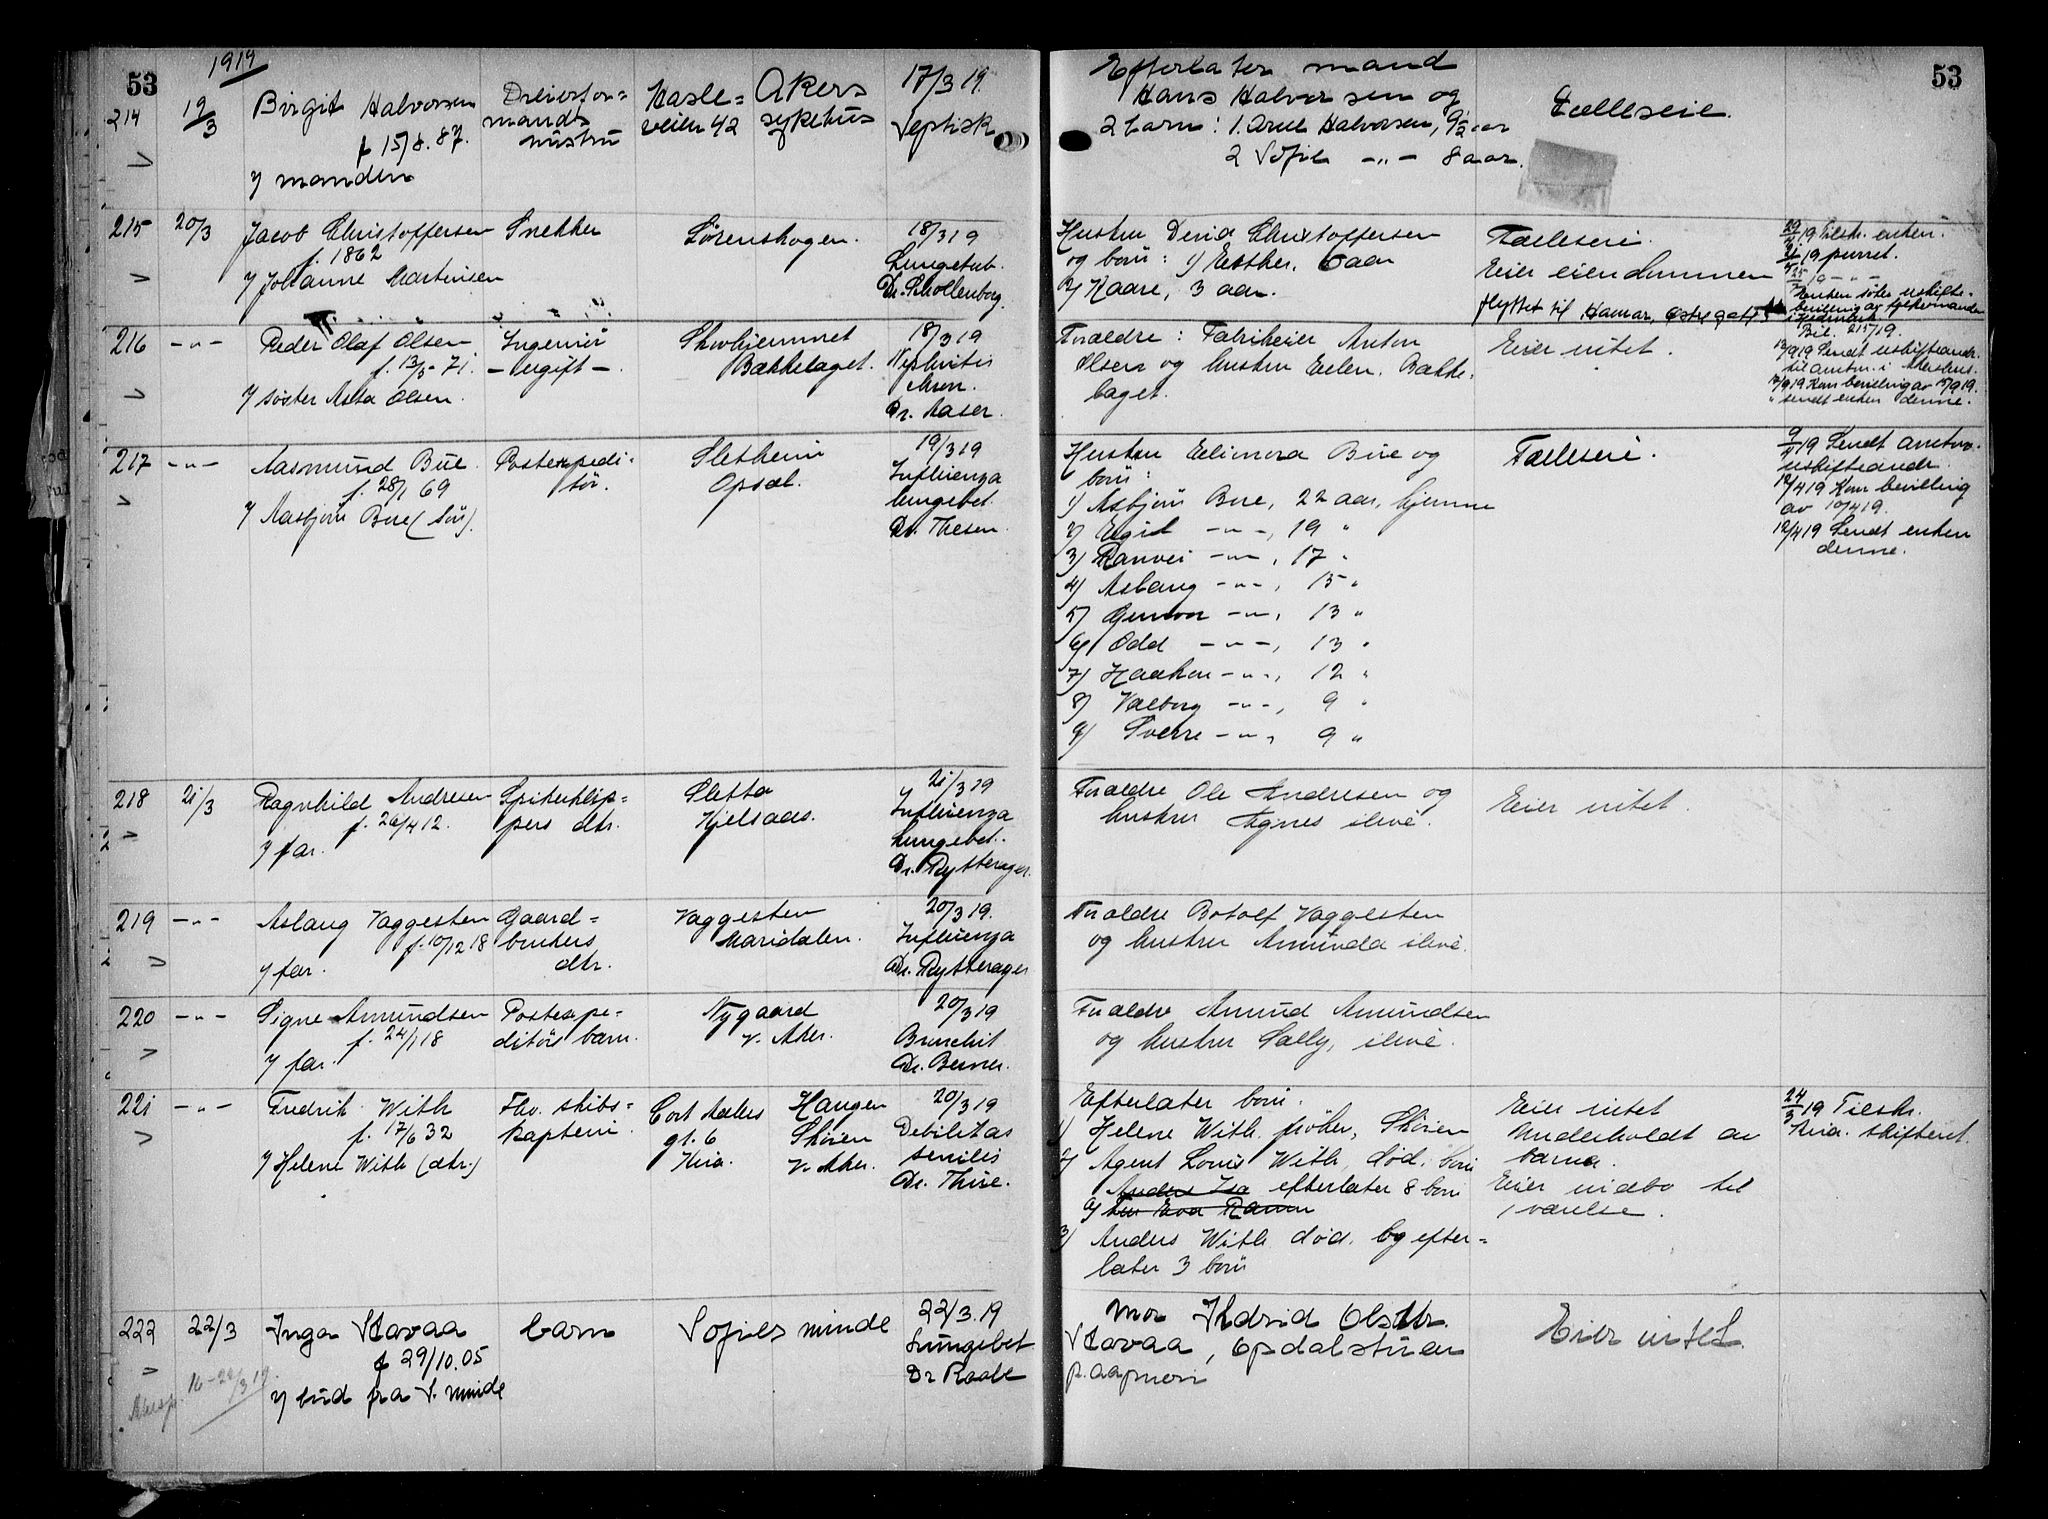 53
1919
53
214
19/3
Birgit Halvorsen
f 15/8.87.
mands
hustru
Hasle=
veien 42
Akers
sykehus
17/3 19.
Septisk
Efterlater mand
Hans Halvorsen og
2 barn: 1. Arne Halvorsen, 9 1/2 aar
2 Sofie -"- 8 aar.
Fælleseie.
v/ manden
215 20/3
Jacob Christoffersen
f. 1862
v/ Johanne Martinsen
Snekker
Sørenshogen.
18/3 19
Lungetub.
Dr. Schollenborg.
Hustru Christoffersen
og børn: 1) Esther, 6 aar
2) Kaare, 3 aar.
Fælleseie.
Eier eiendommen
flyttet til Hamar,
29/3 19 Tilskr. enken.
19 purret.
Enken søker uskifte-
bevilling av
Bil. 215/19.
216 -"-
Peder Olaf Olsen
f. 13/5-71.
v/ søster Asta Olsen.
Ingeniør
- ugift -
Skovhjemmet
Bækkelaget.
18/3 19
Nephritis
chron.
Dr. Aaser.
Forældre: Fabrikeier Anton
Olsen og hustru Ellen, Bække-
laget.
Eier intet.
19 Sendt uskifteandr.
til amtm. i Akershus.
19 Kom bevilling av 19.
" sendt enken denne.
217 -"-
Aasmund Bue.
f. 28/1 69
v/ Aasbjørn Bue (søn).
Postexpedi-
tør.
Sletheim
Opsal.
19/3 19
Influenza
lungebet.
Dr. Thesen.
Hustru Ellinora Bue og
børn:
1) Asbjørn Bue, 22 aar, hjemme
2) Eigil -"-, 19 "
3) Ranvei -"-, 17 "
4) Aslaug -"-, 15 "
5) Gunvor -"-, 13 "
6) Odd -"-, 13 "
7) Haakon -"-, 12 "
8) Valborg -"-, 9 "
9) Sverre -"-, 9 "
Fælleseie.
9/4 19 Sendt amtm.
uskifteandr.
12/4 19 Kom bevilling
av 10/4 19.
12/4 19 Sendt enken
denne.
218 21/3
Ragnhild Andresen
f. 26/4 12.
v/ far.
Spikerklip=
pers dtr.
Sletta
Kjelsaas.
21/3 19
Influenza
Lungebet.
Dr. Rytterager.
Forældre Ole Andresen og
hustru Agnes ilive.
Eier intet.
219 -"-
Aslaug Vaggesten
f. 10/12 18
v/ far.
Gaard=
brukers
dtr.
Vaggesten
Maridalen.
20/3 19.
Influenza
Dr. Rytterager
Forældre Botolf Vaggesten
og hustru Amunda ilive.
220 -"-
Signe Amundsen
f. 24/1 18
v/ far.
Postexpe-
ditørs barn.
Nygaard
v. Aker.
20/3 19
Bronchit
Dr. Berner.
Forældre Amund Amundsen
og hustru Sally, ilive.
221 -"-
Fredrik With
f. 17/6 32
v/ Helene With (dtr.)
Fhv. skibs-
kaptein.
Cort Adelers
gt. 6
Kria.
Haugen
Skøien
v. Aker.
20/3 19
Debilitas
senilis
Dr. Thue.
Efterlater børn:
1) Helene With frøken, Skøien
2) Agent Louis With, død.
efterlater 8 børn
3) Anders With død. Og efter=
later 3 børn
Eier intet
Underholdt av
barna.
Eier indbo til
1 værelse.
24/3 19 Tilskr.
Kria. skifteret.
222
22/3
Inga Stavaa
f 29/10.05
v/ bud fra S. minde
barn
Sofies minde
22/3.19
Lungebet
Dr Raabe
Mor Ildrid Olsdtr.
Stavaa, Opdalstuen
Eier intet.